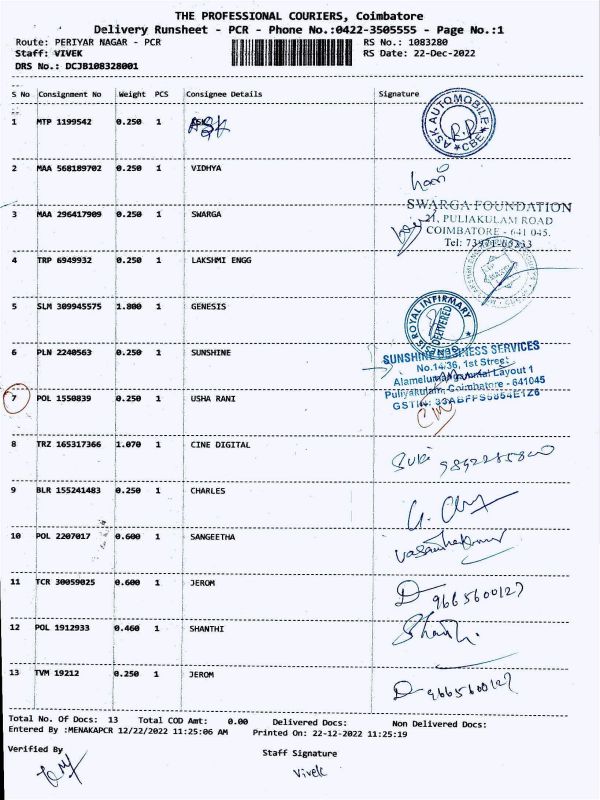 THE PROFESSIONAL COURIERS, Coimbatore
Delivery Runsheet - PCR - Phone No.:0422-3505555 - Page No.:1
Route: PERIYAR NAGAR - PCR RS No.: 1083280
Staff: VIVEK RS Date: 22-Dec-2022
DRS No.: DCJB108328001
S No Consignment No Weight PCS Consignee Details Signature
1 MTP 1199542 0.250 1 ASK
ASK AUTOMOBILE CBE
2 MAA 568189702 0.250 1 VIDHYA
3 MAA 296417909 0.250 1 SWARGA
SWARGA FOUNDATION
21, PULIAKULAM ROAD
COIMBATORE - 641 045.
4 TRP 6949932 0.250 1 LAKSHMI ENGG
5 SLM 309945575 1.800 1 GENESIS
ROYAL INFIRMARY
DELIVERED
6 PLN 2240563 0.250 1 SUNSHINE
SUNSHINE BUSINESS SERVICES
No.14/36, 1st Street
Layout 1
Puliyakulam, Coimbatore - 641045
7 POL 1550839 0.250 1 USHA RANI
8 TRZ 165317366 1.070 1 CINE DIGITAL
9 BLR 155241483 0.250 1 CHARLES
10 POL 2207017 0.600 1 SANGEETHA
11 TCR 30059025 0.600 1 JEROM
9665600127
12 POL 1912933 0.460 1 SHANTHI
Shanthi.
13 TVM 19212 0.250 1 JEROM
9665600127
Total No. Of Docs: 13 Total COD Amt: 0.00 Delivered Docs: Non Delivered Docs:
Entered By :MENAKAPCR 12/22/2022 11:25:06 AM Printed On: 22-12-2022 11:25:19
Verified By Staff Signature
Vivek